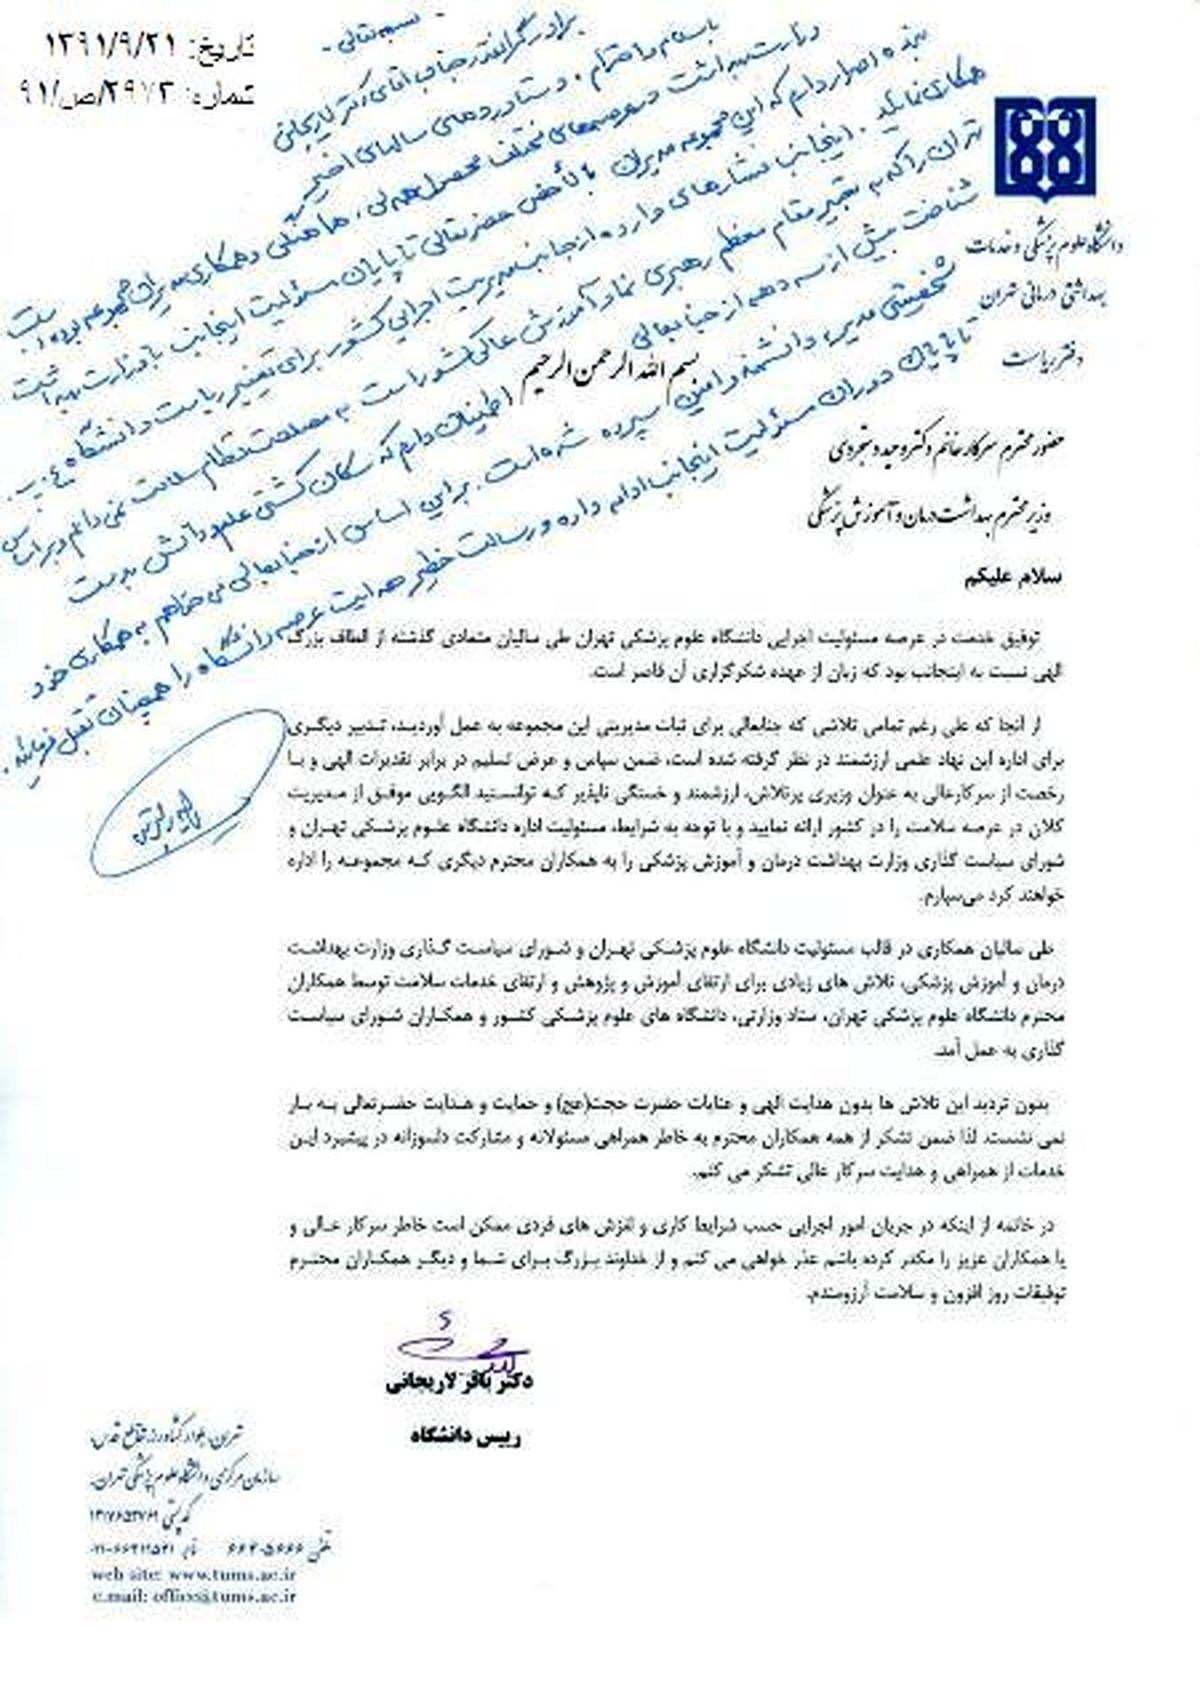 تاریخ: ۱۳۹۱/۹/۲۱
شماره: ۲۹۷۳/ص/۹۱
دانشگاه علوم پزشکی و خدمات
بهداشتی درمانی تهران
دفتر ریاست
بسمه تعالی
برادر گرانقدر جناب آقای دکتر لاریجانی
باسلام و احترام، دستاوردهای سالهای اخیر
وزارت بهداشت در عرصه‌های مختلف محصول همدلی، هماهنگی و همکاری مدیران مجموعه بوده است
بنده اصرار دارم که این مجموعه مدیران بالأخص حضرتعالی تا پایان مسئولیت اینجانب با وزارت بهداشت
همکاری نمایند. اینجانب فشارهای وارده از جانب مدیریت اجرایی کشور برای تغییر ریاست دانشگاه ع.پ.
تهران را که به تعبیر مقام معظم رهبری نماد آموزش عالی کشور است به مصلحت نظام سلامت نمی دانم و بر اساس
شناخت بیش از سه دهه از جنابعالی
اطمینان دارم که سکان کشتی علم و دانش بدست
شخصیتی مدیر، دانشمند و امین سپرده شده است. بر این اساس از جنابعالی می خواهم به همکاری خود
تا پایان دوران مسئولیت اینجانب ادامه داده و رسالت خطیر هدایت عرصه دانشگاه را همچنان تقبل فرمائید.
بسم الله الرحمن الرحیم
حضور محترم سرکار خانم دکتر وحید دستجردی
وزیر محترم بهداشت درمان و آموزش پزشکی
سلام علیکم
توفیق خدمت در عرصه مسئولیت اجرایی دانشگاه علوم پزشکی تهران طی سالیان متمادی گذشته از الطاف بزرگ
الهی نسبت به اینجانب بود که زبان از عهده شکرگزاری آن قاصر است.
از آنجا که علی رغم تمامی تلاشی که جنابعالی برای ثبات مدیریتی این مجموعه به عمل آوردید، تدبیر دیگری
برای اداره این نهاد علمی ارزشمند در نظر گرفته شده است، ضمن سپاس و عرض تسلیم در برابر تقدیرات الهی و با
رخصت از سرکارعالی به عنوان وزیری پرتلاش، ارزشمند و خستگی ناپذیر که توانستید الگویی موفق از مدیریت
کلان در عرصه سلامت را در کشور ارائه نمایید و با توجه به شرایط، مسئولیت اداره دانشگاه علوم پزشکی تهران و
شورای سیاست گذاری وزارت بهداشت درمان و آموزش پزشکی را به همکاران محترم دیگری که مجموعه را اداره
خواهند کرد می‌سپارم.
طی سالیان همکاری در قالب مسئولیت دانشگاه علوم پزشکی تهران و شورای سیاست گذاری وزارت بهداشت
درمان و آموزش پزشکی، تلاش های زیادی برای ارتقای آموزش و پژوهش و ارتقای خدمات سلامت توسط همکاران
محترم دانشگاه علوم پزشکی تهران، ستاد وزارتی، دانشگاه های علوم پزشکی کشور و همکاران شورای سیاست
گذاری به عمل آمد.
بدون تردید این تلاش ها بدون هدایت الهی و عنایات حضرت حجت(عج) و حمایت و هدایت حضرتعالی به بار
نمی نشست. لذا ضمن تشکر از همه همکاران محترم به خاطر همراهی مسئولانه و مشارکت دلسوزانه در پیشبرد این
خدمات از همراهی و هدایت سرکار عالی تشکر می کنم.
در خاتمه از اینکه در جریان امور اجرایی حسب شرایط کاری و لغزش های فردی ممکن است خاطر سرکار عالی و
یا همکاران عزیز را مکدر کرده باشم عذر خواهی می کنم و از خداوند بزرگ برای شما و دیگر همکاران محترم
توفیقات روز افزون و سلامت آرزومندم.
دکتر باقر لاریجانی
رییس دانشگاه
تهران، بلوار کشاورز، تقاطع قدس،
سازمان مرکزی دانشگاه علوم پزشکی تهران.
کد پستی
تلفن نمابر
web site: www.tums.ac.ir
e.mail: office@tums.ac.ir